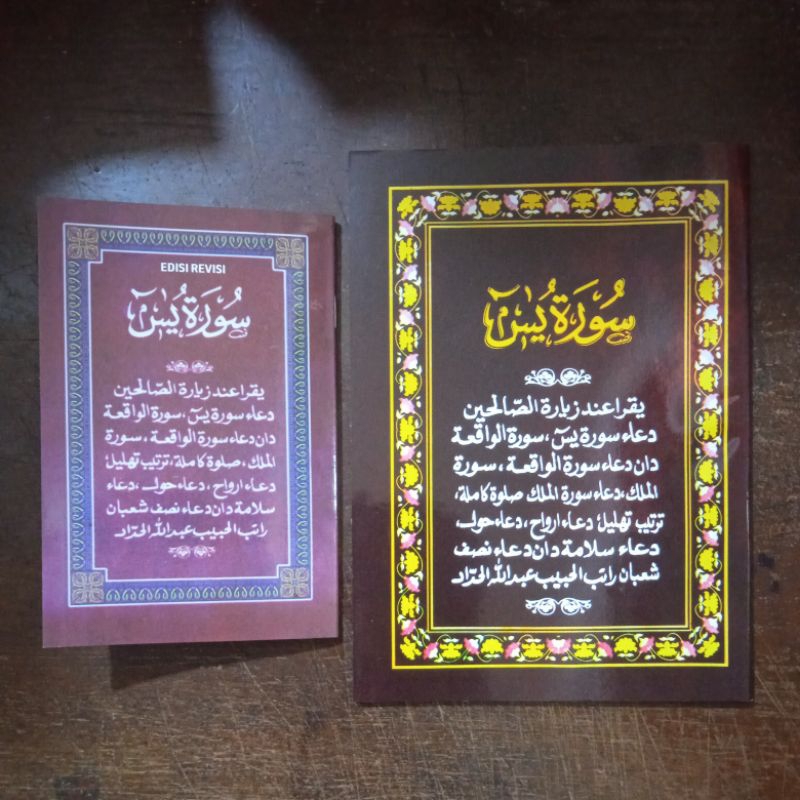 EDISI REVISI
سُورَة يٰسٓ
يقرا عند زيارة الصّالحين
دعاء سورة يسٓ، سورة الواقعة
دان دعاء سورة الواقعة، سورة
الملك، صلوة كاملة، ترتيب تهليل،
دعاء ارواح، دعاء حول، دعاء
سلامة دان دعاء نصف شعبان
راتب الحبيب عبد الله الحدّاد
سُورَة يٰسٓ
يقرا عند زيارة الصّالحين
دعاء سورة يسٓ، سورة الواقعة
دان دعاء سورة الواقعة، سورة
الملك، دعاء سورة الملك صلوة كاملة،
ترتيب تهليل، دعاء ارواح، دعاء حول،
دعاء سلامة دان دعاء نصف
شعبان راتب الحبيب عبد الله الحدّاد